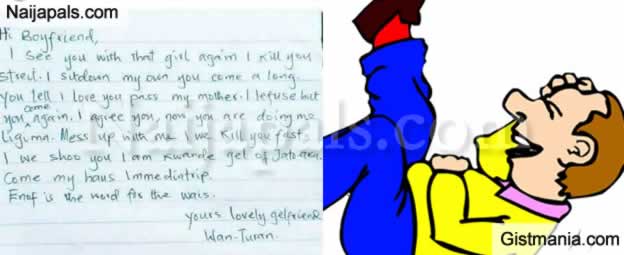 Naijapals.com
Hi Boyfriend,
I see you with that girl again I kill you
street. I sitdown my own you come a long.
You tell I love you pass my mother. I refuse but
you come again. I agree you, now you are doing me
liguma. Mess up with me I we kill you fasts
I we shoo you I am Kwande gel of Jato-Aka.
Come my haus Immediatrip.
Enof is the word for the wais.
yours lovely gelfriend
Wan-Turan.
Naijapals.com
Gistmania.com